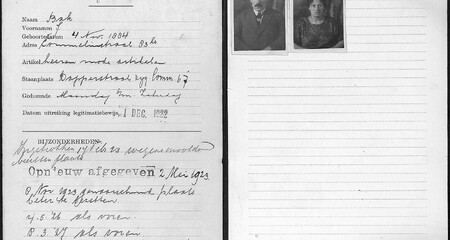 Naam Bak
Voornamen J
Geboortedatum 4 Nov. 1884
Adres Commelinstraat 83hs
Artikel heeren mode artikelen
Staanplaats Dapperstraat zijg Comm. 67
Gedurende Maandag t/m Zaterdag
Datum uitreiking legitimatiebewijs 1 DEC. 1922
BIJZONDERHEDEN
Ingetrokken 17 Feb 23 wegens
plaats
Opnieuw afgegeven 2 Mei 1923
Nov. 1923 plaats
beter te bezetten
4.5.'26 als voren
8.3.'27 als voren.